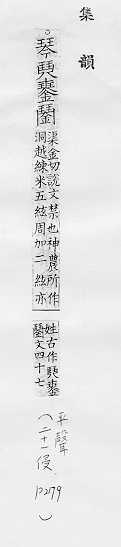 集韻
。琴
渠金切說文禁也神農所作
洞越練朱五絃周加二絃亦
姓古作
文四十七
平聲
(二十一侵
P279)